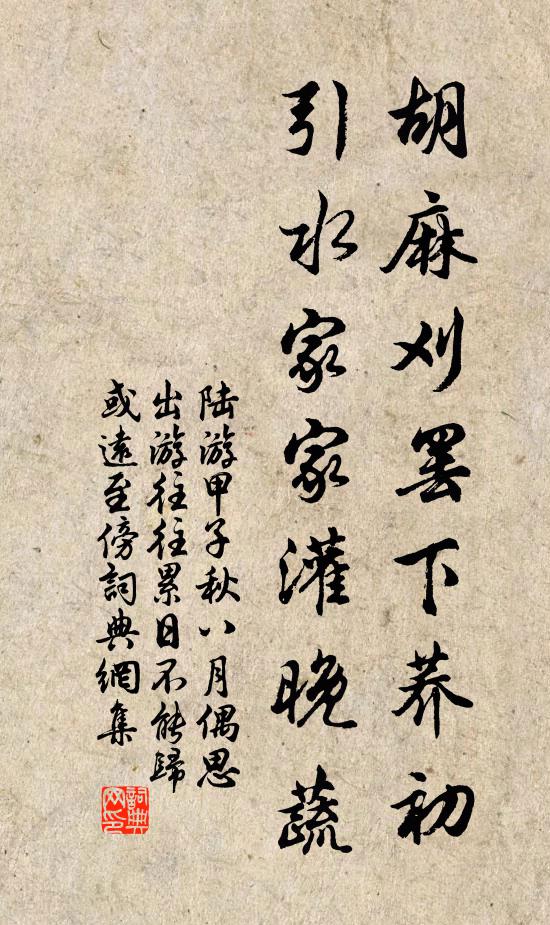 胡麻刈罢下荞初
引水家家灌晚蔬
陆游甲子秋八月偶思
出游往往累日不能歸
或遠至傍詞典網集
詞典
网印